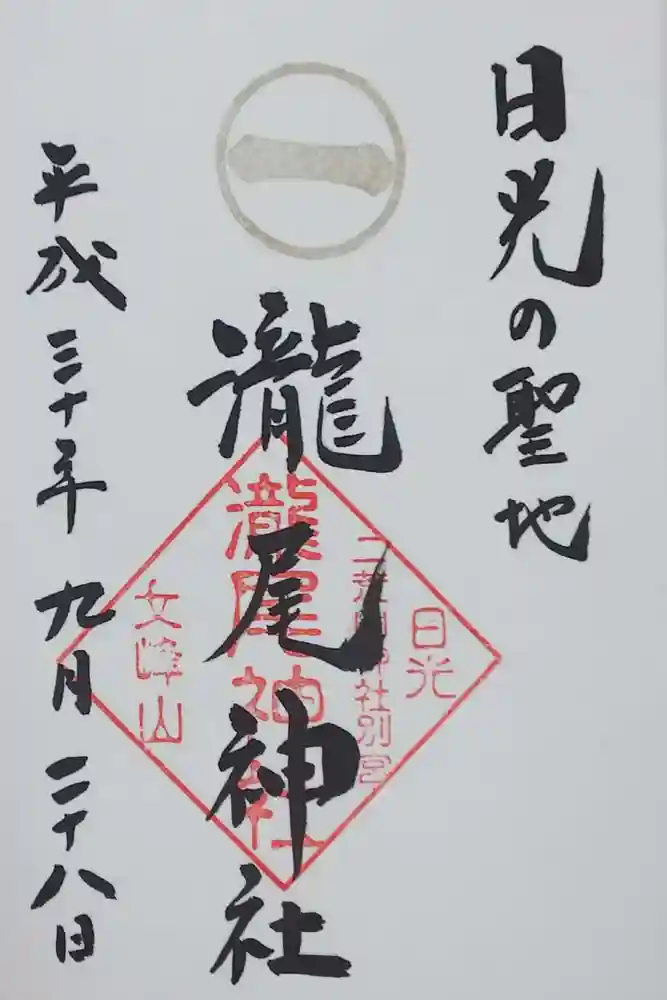 日光の聖地
一
瀧尾神社
日光
二荒山神社別宮
瀧尾神社
女峰山
平成三十年九月二十八日